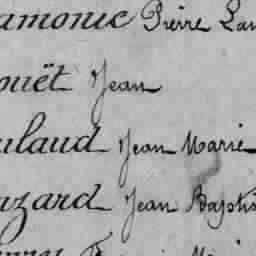 amonic Pierre Lau
ouët Jean
ulaud Jean Marie
azard Jean Baptis